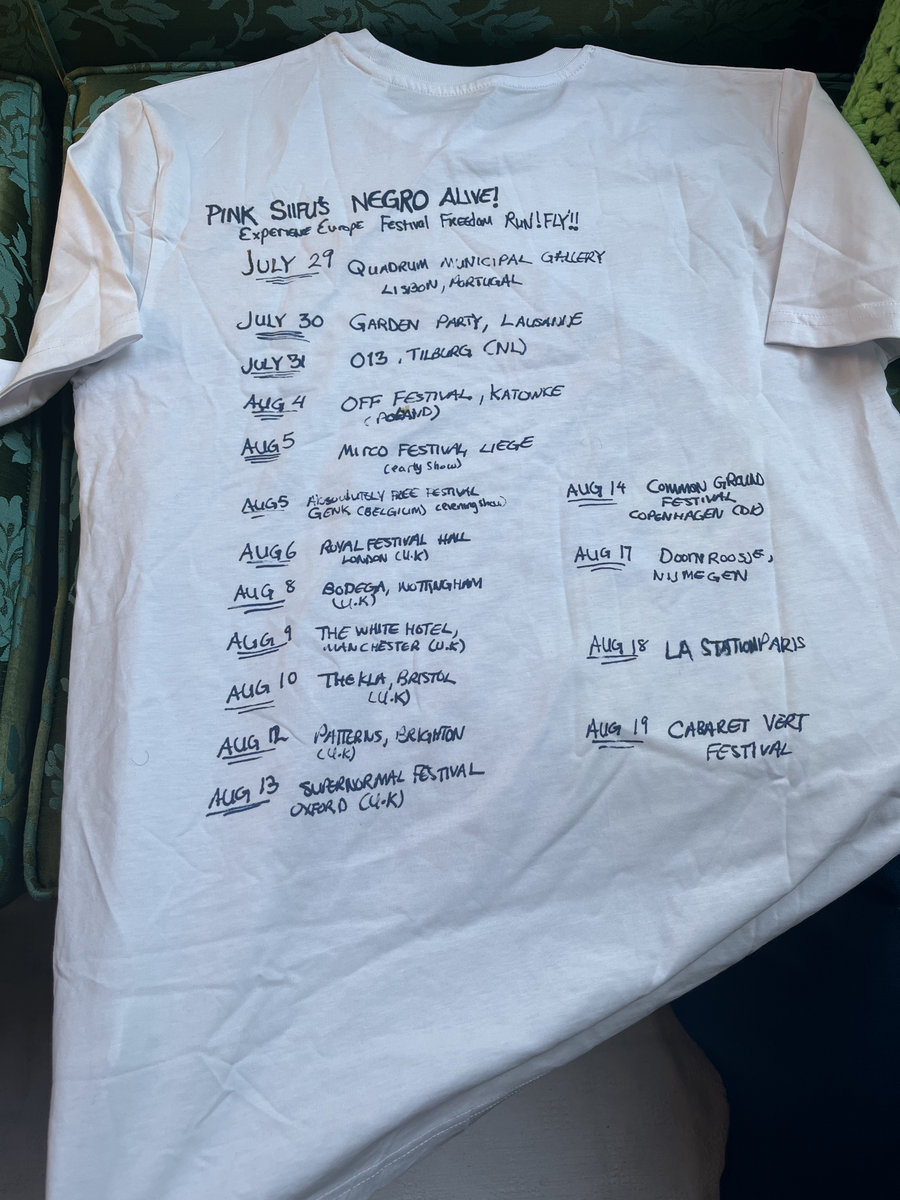 PINK SIIFU'S NEGRO ALIVE!
EXPERIENCE EUROPE FESTIVAL FREEDOM RUN!FLY!!
JULY 29 QUADRUM MUNICIPAL GALLERY
LISBON, PORTUGAL
JULY 30 GARDEN PARTY, LAUSANNE
JULY 31 013, TILBURG (NL)
AUG 4 OFF FESTIVAL, KATOWICE
(POLAND)
AUG 5 MIRCO FESTIVAL, LIEGE
(early show)
AUG 5 ABSOLUTELY FREE FESTIVAL
GENK (BELGIUM) (evening show)
AUG 6 ROYAL FESTIVAL HALL
LONDON (U.K)
AUG 8 BODEGA, NOTTINGHAM
(U.K)
AUG 9 THE WHITE HOTEL,
MANCHESTER (U.K)
AUG 10 THEKLA, BRISTOL
(U.K)
AUG 12 PATTERNS, BRIGHTON
(U.K)
AUG 13 SUPERNORMAL FESTIVAL
OXFORD (U.K)
AUG 14 COMMON GROUND
FESTIVAL
COPENHAGEN (DK)
AUG 17 DOORNROOSJE,
NIJMEGEN
AUG 18 LA STATION PARIS
AUG 19 CABARET VERT
FESTIVAL